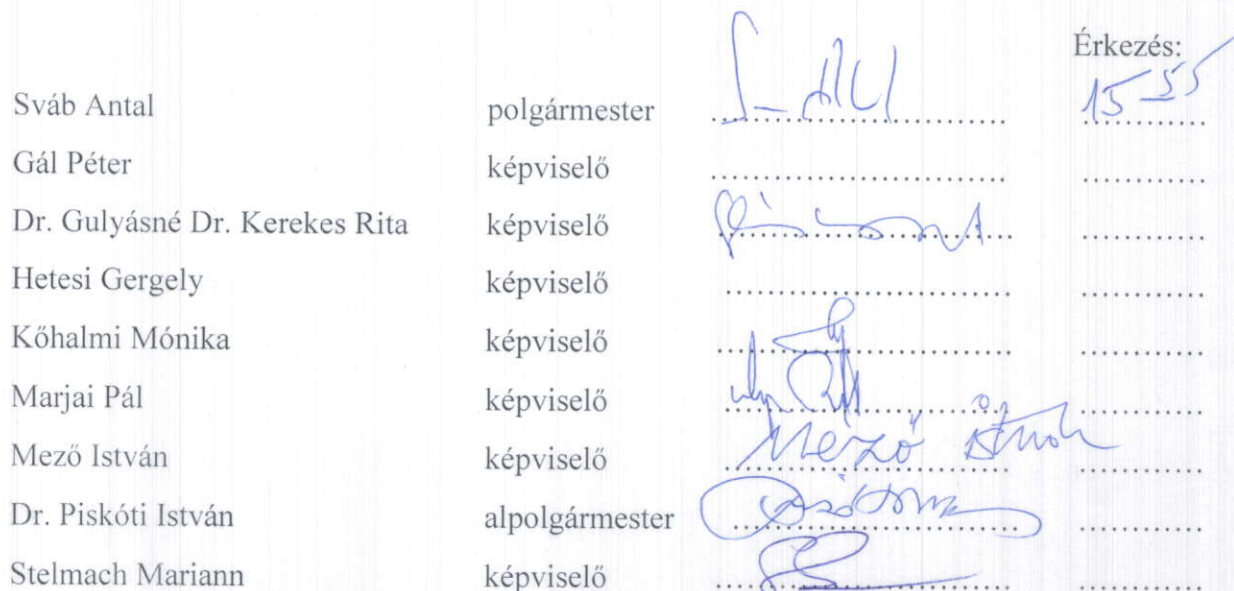 Érkezés:
Sváb Antal polgármester .............................. 15 55
Gál Péter képviselő .............................. .............
Dr. Gulyásné Dr. Kerekes Rita képviselő .............................. .............
Hetesi Gergely képviselő .............................. .............
Kőhalmi Mónika képviselő .............................. .............
Marjai Pál képviselő .............................. .............
Mező István képviselő Mező István .............
Dr. Piskóti István alpolgármester .............................. .............
Stelmach Mariann képviselő .............................. .............